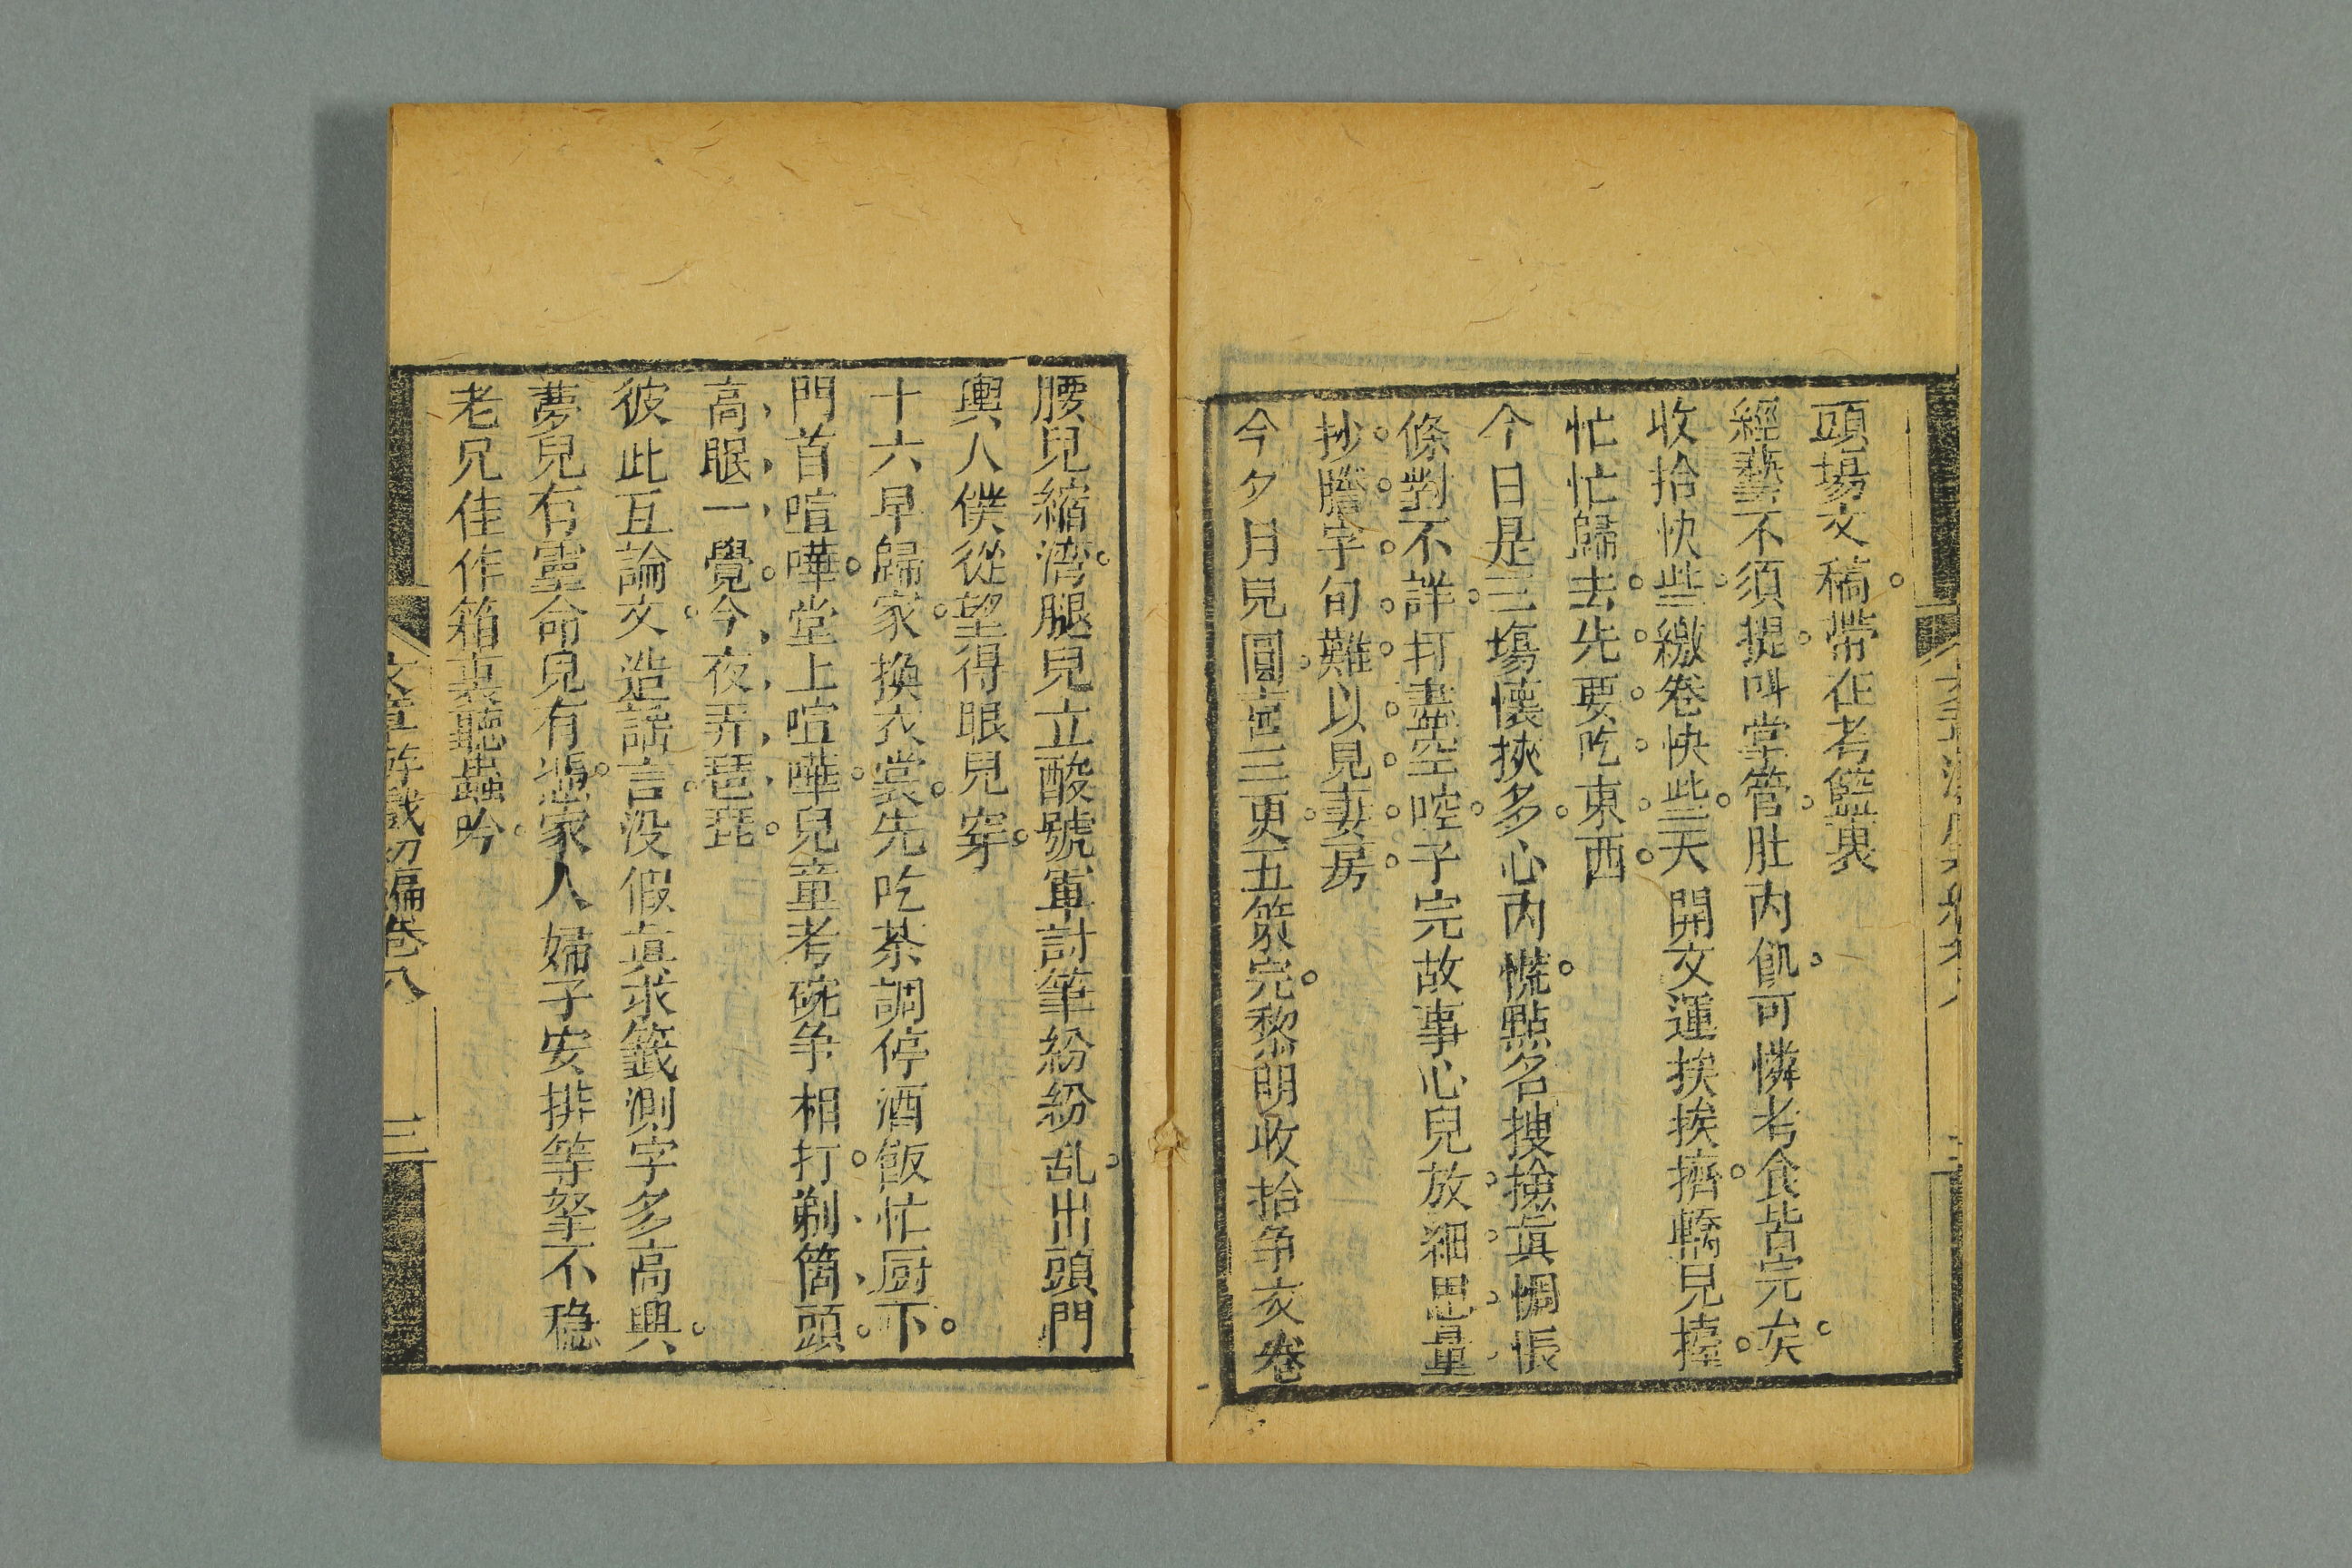 頭場文稿帶在考籃裏
經藝不須提叫掌管肚内飢可憐考食皆完矣
收拾快些繳卷快些天開文運挨挨擠轎兒擡
忙忙歸去先要吃東西
今日是三塲懷挾多心内慌點名搜撿眞惆悵
條對不詳打盡空腔子完故事心兒放細思量
抄謄字句難以見妻房
今夕月兒圓喜三更五策完黎明收拾争交卷
腰兒縮湾腿兒立酸號軍討筆紛紛乱出頭門
輿人僕從望得眼兒穿
十六早歸家換衣裳先吃茶調停酒飯忙厨下
門首喧嘩堂上喧嘩兒童考碗争相打剃箇頭
高眠一覺今夜弄琵琶
彼此互論文造謡言没假真求籤測字多高興
夢兒有靈命兒有憑家人婦子安排等拏不穏
老兄佳作箱裏聽蟲吟
文章游戲初編卷八
三